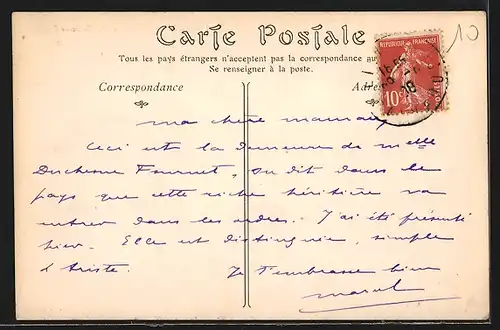 Carte Postale
Tous les pays étrangers n'acceptent pas la correspondance au
Se renseigner à la poste.
Correspondance
Adres
REPUBLIQUE FRANÇAISE
10
POSTES
10
ma chère maman,
Ceci est la demeure de melle
Duchesne Fournet, on dit dans le
pays que cette riche héritière va
entrer dans les ordres. J'ai été présenté
hier. Elle est distinguée, simple
& triste. Je t'embrasse bien